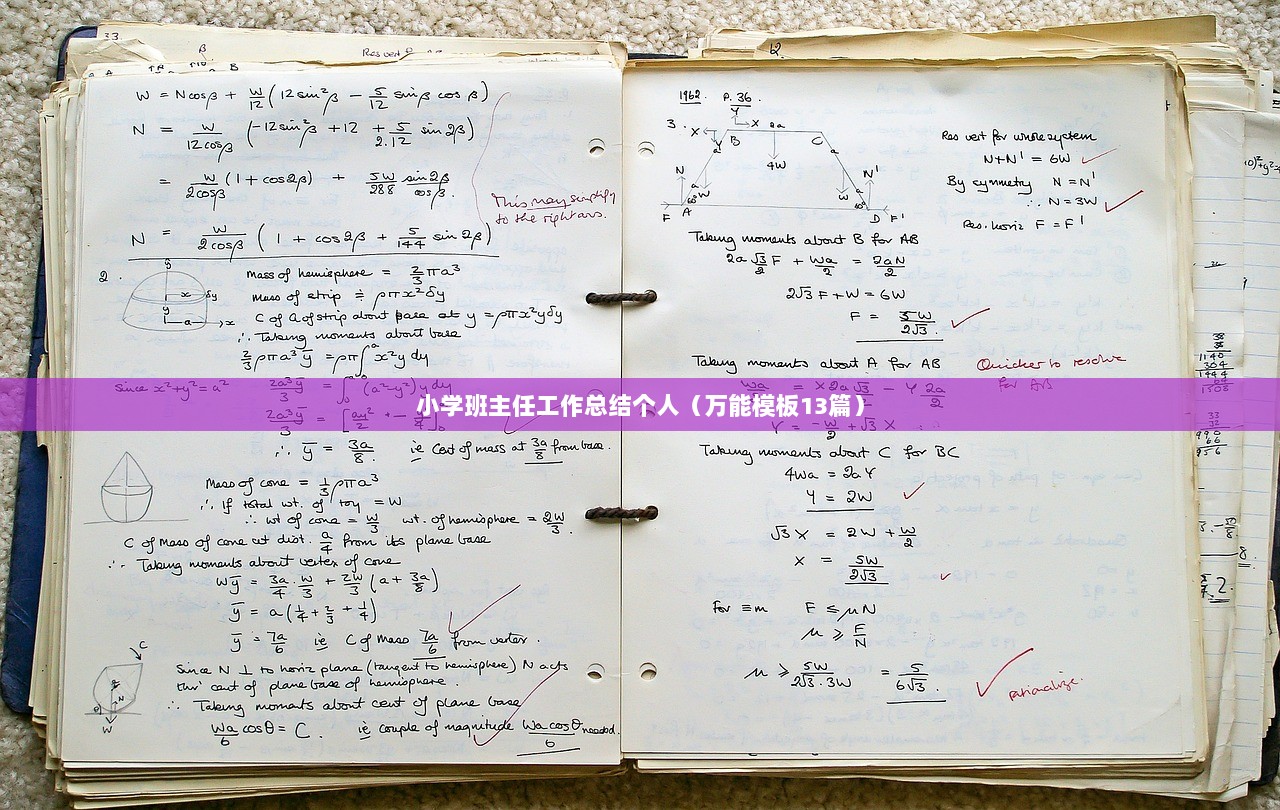 33.
β
Res vert
W = N cos β + W/12 (12 sin²β − 5/12 sin β cos β)
N = W/12 cos β (−12 sin²β + 12 + 5/2.12 sin 2β)
= W/2cosβ (1 + cos 2β) + 5W/288 sin 2β/cos β.
This may simplify
to the right ans.
N = W/2cosβ (1 + cos 2β + 5/144 sin 2β)
2.
Mass of hemisphere = 2/3 πa³
mass of strip ≑ ρπx²δy
C of G of strip about base at y = ρπx²yδy
∴ Taking moments about base
2/3 ρπa³ȳ = ρπ∫x²y dy
Since x²+y²=a² 2a³ȳ/3 = ∫(a²−y²)y dy
小学班主任工作总结个人（万能模板13篇）
∴ ȳ = 3a/8. ie Cent of mass at 3a/8 from base.
Mass of cone = 1/3 ρπa³
∴ If total wt. of toy = W
∴ wt of cone = W/3 wt. of hemisphere = 2W/3.
C of mass of cone at dist. a/4 from its plane base
∴ Taking moments about vertex of cone
Wȳ = 3a/4 · W/3 + 2W/3 (a + 3a/8)
ȳ = a(1/4 + 2/3 + 1/4)
ȳ = 7a/6 ie C of Mass 7a/6 from vertex.
Since N ⊥ to horiz plane (tangent to hemisphere) N acts
thro' cent of plane base of hemisphere.
∴ Taking moments about cent of plane base
Wa/6 cosθ = C. ie couple of magnitude Wa cosθ/6 needed.
1962. P. 36.
3.
Res vert for whole system
N+N' = 6W
By symmetry N = N'
∴ N = 3W
Res. horiz F = F'
Taking moments about B for AB
2a √3/2 F + Wa/2 = 2aN/2
2√3 F + W = 6W
F = 5W/2√3.
Taking moments about A for AB
Quicker to resolve
for AB
Wa/2 = X 2a √3/2 − Y 2a/2
Y = −W/2 + √3 X
Taking moments about C for BC
4Wa = 2aY
Y = 2W
√3 X = 2W + W/2
X = 5W/2√3
For ≡m F ≤ μN
μ ≥ F/N
μ ≥ 5W/2√3.3W = 5/6√3.
rationalize.